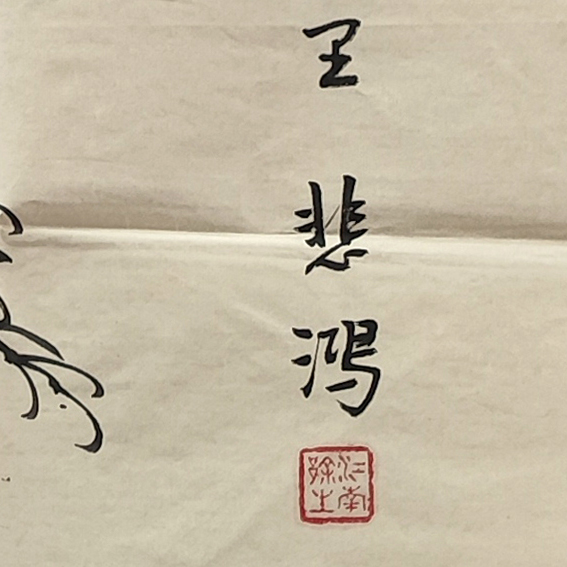 悲鸿
江南徐生